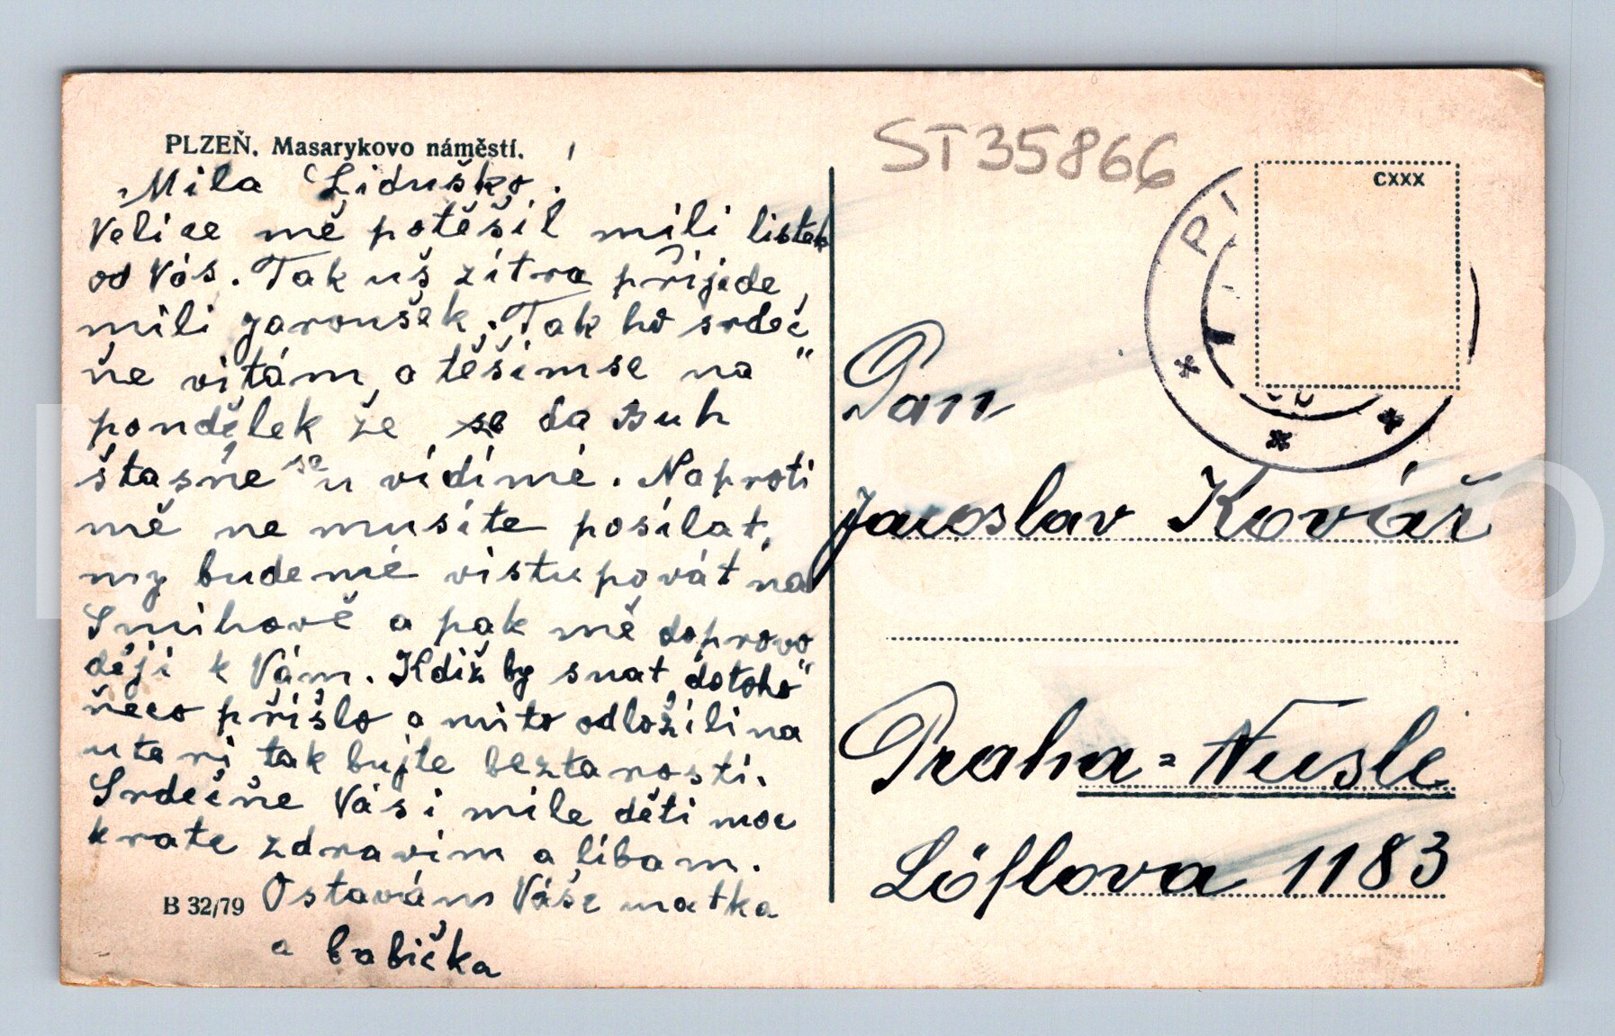 PLZEŇ. Masarykovo náměstí.
Mila Liduško.
Velice mě potěšil mili listek
od Vás. Tak uš zítra přijede
mili Jaroušek. Tak ho srdeč
ňe vitám a těšimse na "
pondělek že se da Buh
štasňe se u vidímé. Naproti
mě ne musíte posílat,
my budemé vistupovát na
Smihově a pak mě doprovo
ději k Vám. Kdiž by snat dotoho"
ňeco přišlo a mito odložili na
uteri tak bujte beztarosti.
Srdečňe Vás i mile děti moc
krate zdravim a líbam.
Ostaváni Váše matka
a babička
B 32/79
ST35866
CXXX
Pan
Jaroslav Kovář
Praha=Nusle
Löflova 1183